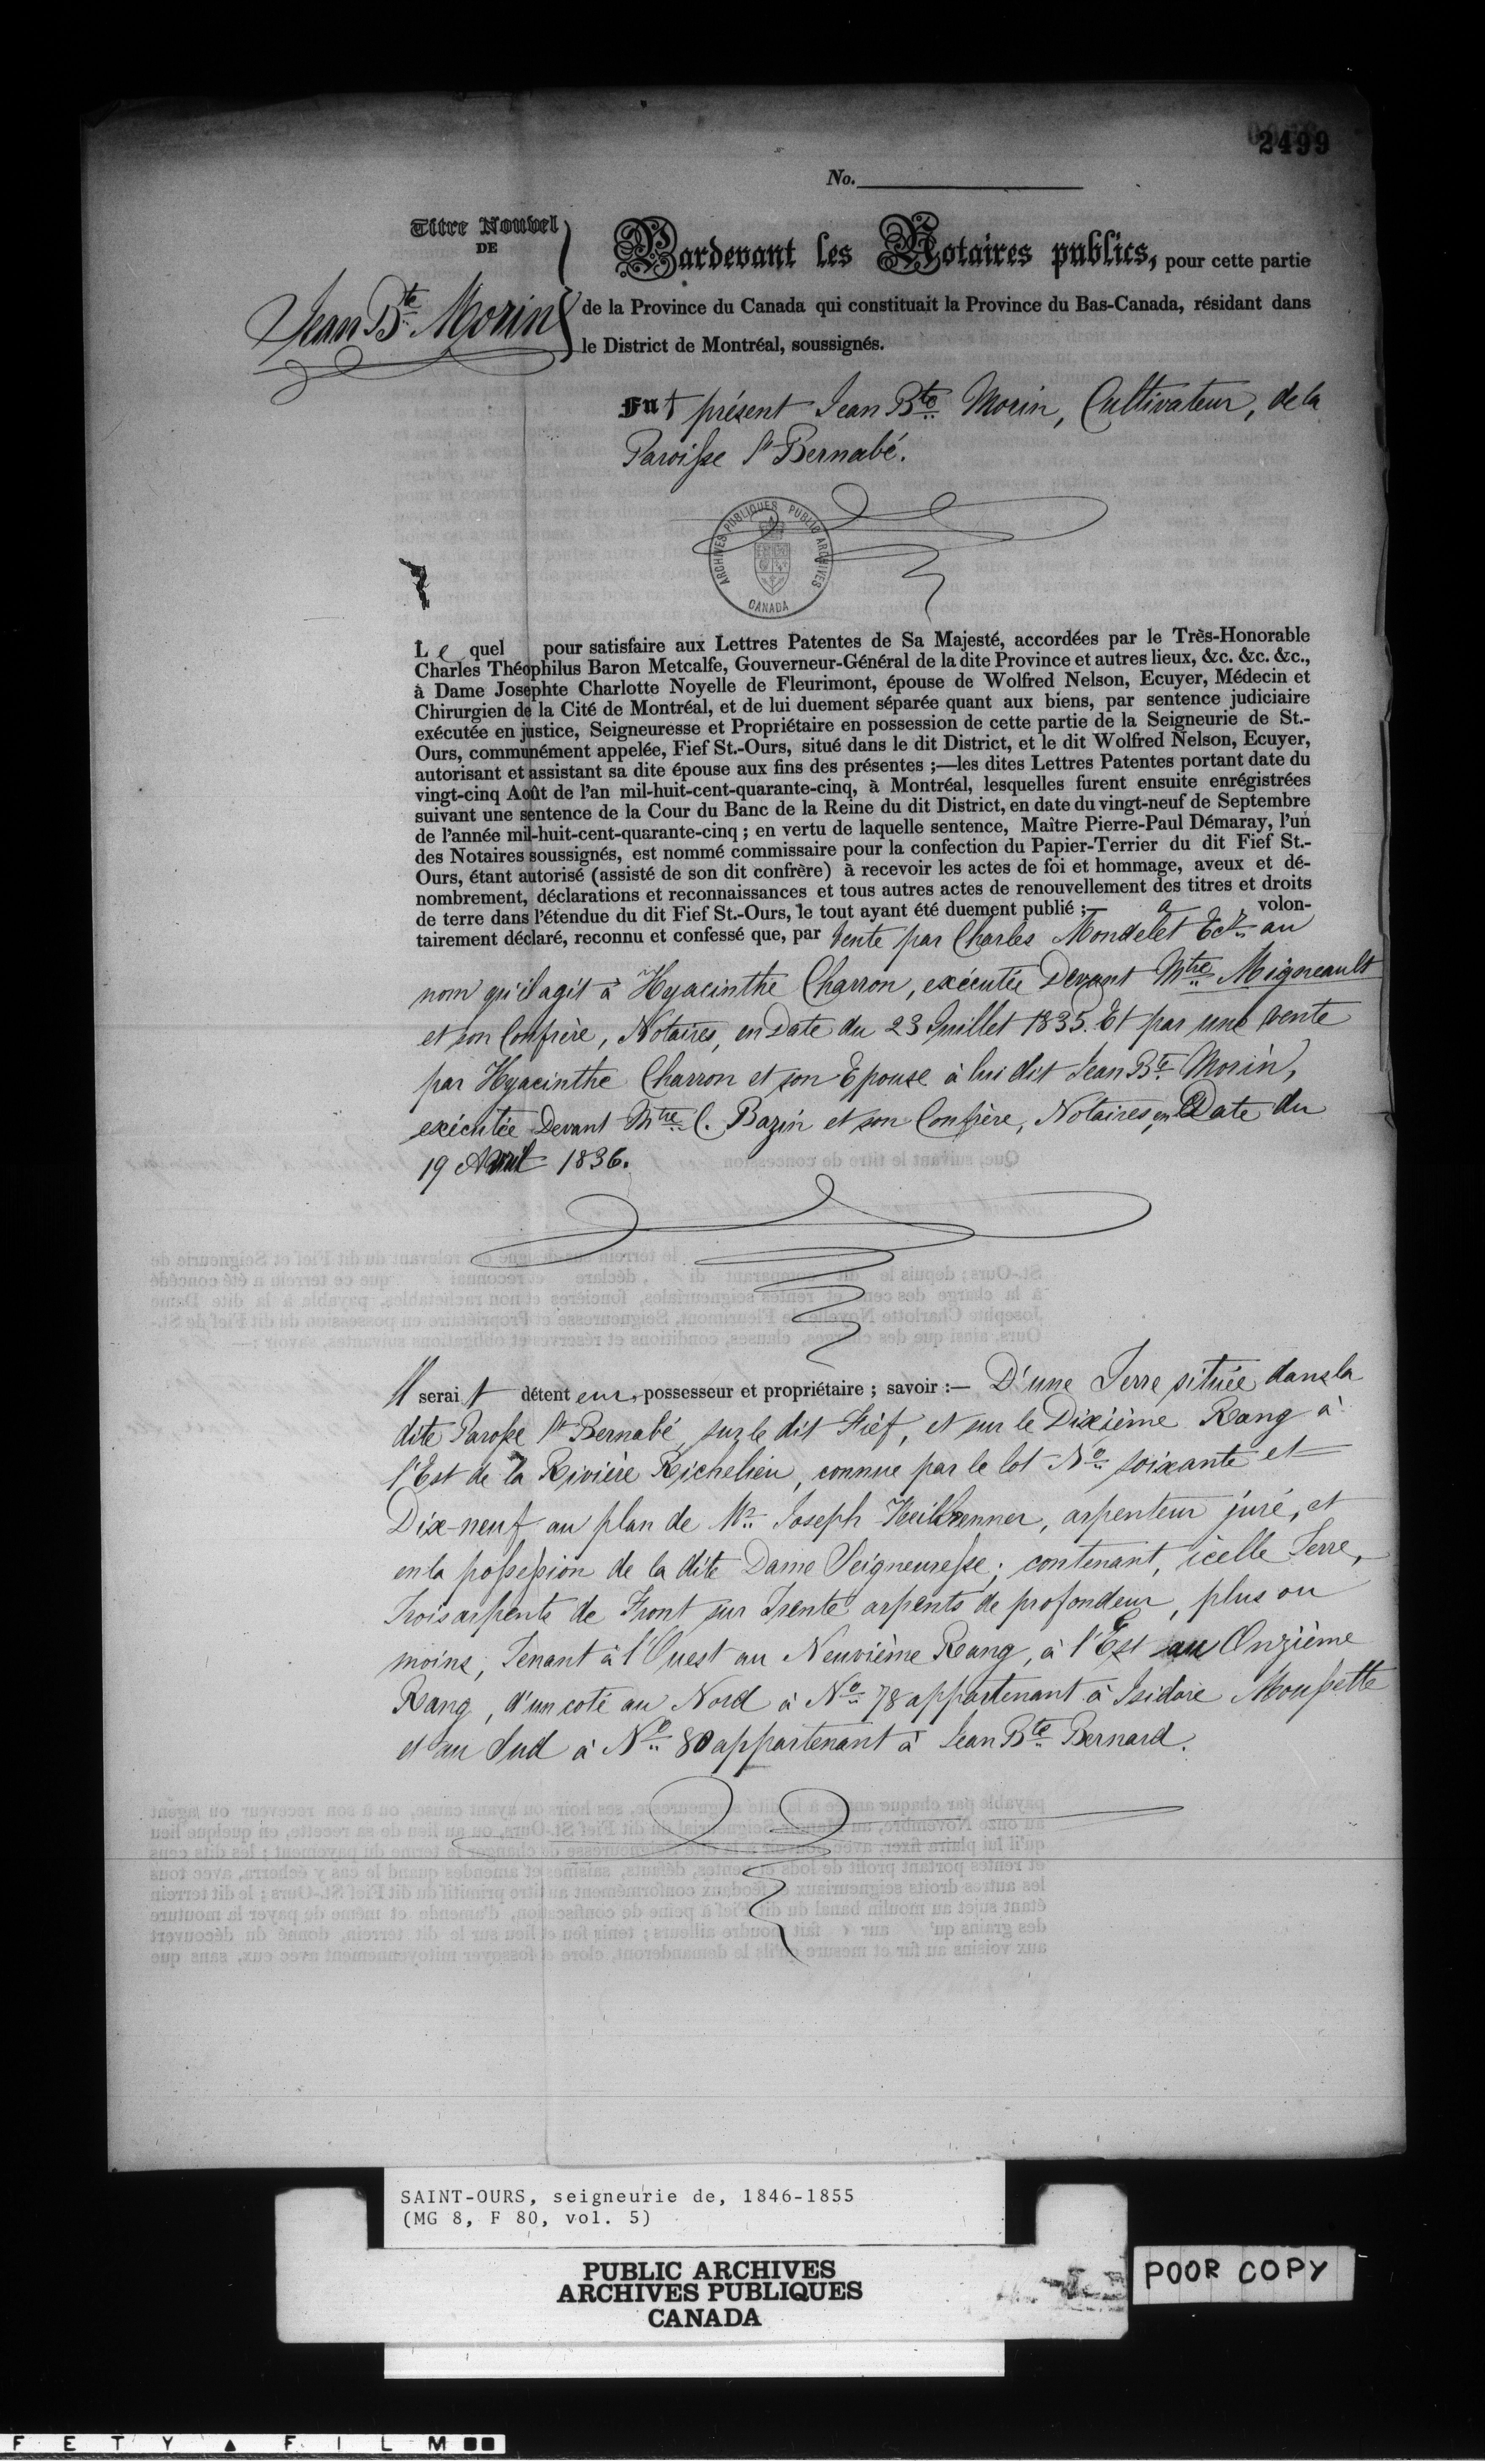 2499
No.
Titre Nouvel
DE
Jean Bte Morin
Pardevant les Notaires publics, pour cette partie
de la Province du Canada qui constituait la Province du Bas-Canada, résidant dans
le District de Montréal, soussignés.
Fut présent Jean Bte Morin, Cultivateur, de la
Paroisse St Bernabé.
ARCHIVES PUBLIQUES PUBLIC ARCHIVES
CANADA
Le quel pour satisfaire aux Lettres Patentes de Sa Majesté, accordées par le Très-Honorable
Charles Théophilus Baron Metcalfe, Gouverneur-Général de la dite Province et autres lieux, &c. &c. &c.,
à Dame Josephte Charlotte Noyelle de Fleurimont, épouse de Wolfred Nelson, Ecuyer, Médecin et
Chirurgien de la Cité de Montréal, et de lui duement séparée quant aux biens, par sentence judiciaire
exécutée en justice, Seigneuresse et Propriétaire en possession de cette partie de la Seigneurie de St.-
Ours, communément appelée, Fief St.-Ours, situé dans le dit District, et le dit Wolfred Nelson, Ecuyer,
autorisant et assistant sa dite épouse aux fins des présentes ;—les dites Lettres Patentes portant date du
vingt-cinq Août de l'an mil-huit-cent-quarante-cinq, à Montréal, lesquelles furent ensuite enrégistrées
suivant une sentence de la Cour du Banc de la Reine du dit District, en date du vingt-neuf de Septembre
de l'année mil-huit-cent-quarante-cinq ; en vertu de laquelle sentence, Maître Pierre-Paul Démaray, l'un
des Notaires soussignés, est nommé commissaire pour la confection du Papier-Terrier du dit Fief St.-
Ours, étant autorisé (assisté de son dit confrère) à recevoir les actes de foi et hommage, aveux et dé-
nombrement, déclarations et reconnaissances et tous autres actes de renouvellement des titres et droits
de terre dans l'étendue du dit Fief St.-Ours, le tout ayant été duement publié ;— a volon-
tairement déclaré, reconnu et confessé que, par Vente par Charles Mondelet Ecr. au
nom qu'il agit à Hyacinthe Charron, exécutée Devant Mtre Migneault
et son Confrère, Notaires, en Date du 23 Juillet 1835. Et par une vente
par Hyacinthe Charron et son Epouse à lui dit Jean Bte Morin,
exécutée Devant Mtre C. Bazin et son Confrère, Notaires, en Date du
19 Avril 1836.
Il serait détenteur, possesseur et propriétaire ; savoir :— D'une Terre située dans la
dite Paroisse St Bernabé, sur le dit Fief, et sur le Dixième Rang à
l'Est de la Rivière Richelieu, connue par le lot No. soixante et
Dix-neuf au plan de Mr. Joseph Heilbrenner, arpenteur juré, et
en la possession de la dite Dame Seigneuresse ; contenant, icelle Terre,
Trois arpents de Front sur Trente arpents de profondeur, plus ou
moins, Tenant à l'Ouest au Neuvième Rang, à l'Est au Onzième
Rang, d'un coté au Nord à No. 78 appartenant à Isidore Moussette
et au Sud à No. 80 appartenant à Jean Bte Bernard.
SAINT-OURS, seigneurie de, 1846-1855
(MG 8, F 80, vol. 5)
PUBLIC ARCHIVES
ARCHIVES PUBLIQUES
CANADA
POOR COPY
FETY ▲ FILM